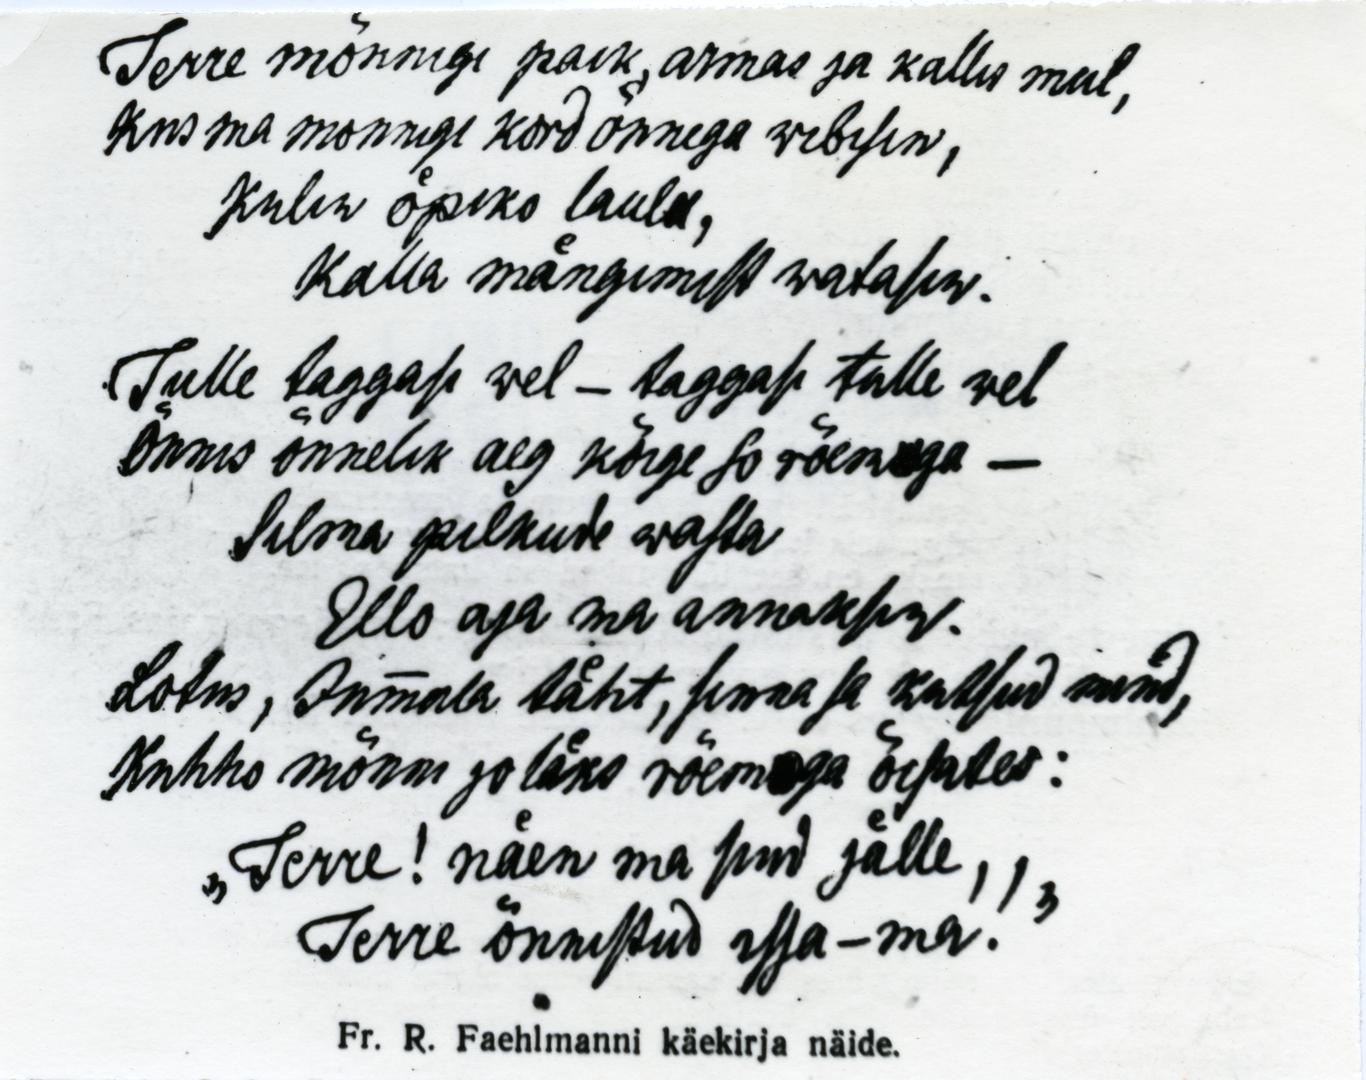 Terre mönnigi paik, armas ja kallis mul,
Kus ma monnigi kord önnega wibisin,
Kulin öpiko laulu,
Kalla mängimist watasin.
Tulle taggasi wel – taggasi tulle wel
Önnis önnelik aeg köige so röemoga –
Silma pilkude wasta
Ello aja ma annaksin.
Lotus, Jum̅ala täht, sinna sa kutsud mind,
Kuhho mönni jo läks röemoga öisates:
„Terre! näen ma sind jälle,
Terre önnistud issa–ma!"
Fr. R. Faehlmanni käekirja näide.